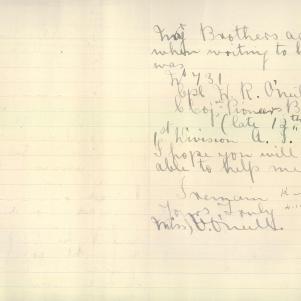 My Brothers ad
when writing to h
was
No 731
Cpl W. R. O'Neil
C Coy. Pioneers B
(late 12th
1st Division A. I.
I hope you will
able to help me
I remain
Yours Truly
Miss V. O'Neill.